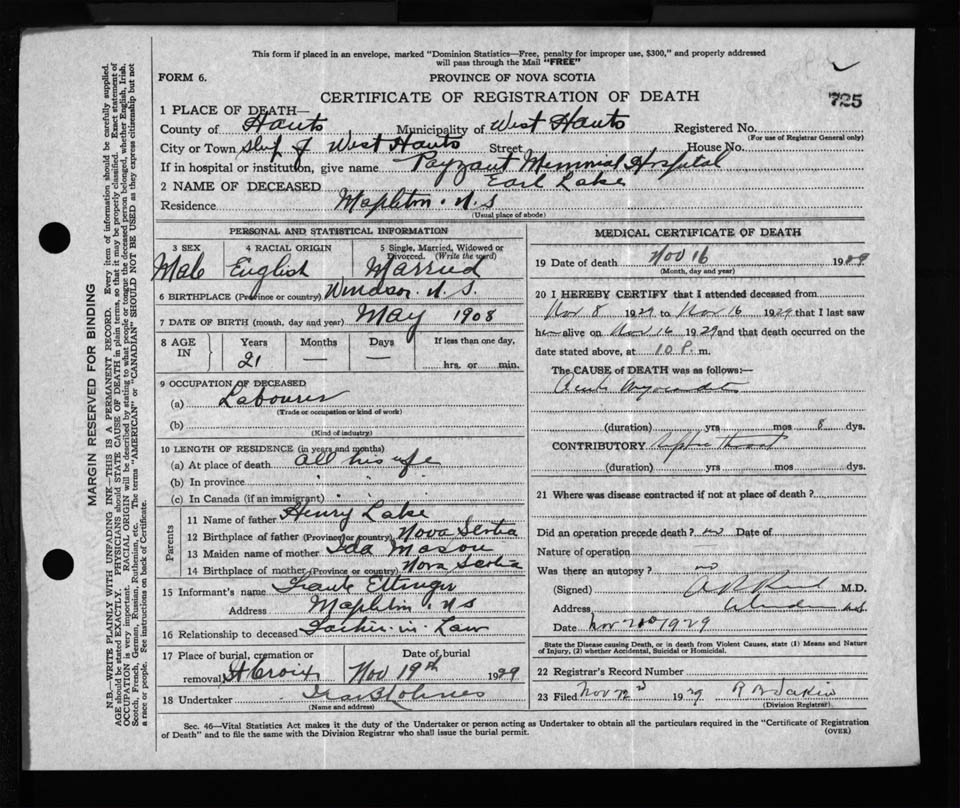 This form if placed in an envelope, marked "Dominion Statistics—Free, penalty for improper use, $300," and properly addressed
will pass through the Mail "FREE"
FORM 6.
PROVINCE OF NOVA SCOTIA
CERTIFICATE OF REGISTRATION OF DEATH
725
1 PLACE OF DEATH—
County of Hants Municipality of West Hants Registered No.
(For use of Registrar General only)
City or Town of West Hants Street House No.
If in hospital or institution, give name Payzant Memorial Hospital
2 NAME OF DECEASED Earl Lake
Residence Mapleton. N.S
(Usual place of abode)
PERSONAL AND STATISTICAL INFORMATION
3 SEX 4 RACIAL ORIGIN 5 Single, Married, Widowed or Divorced. (Write the word)
Male English Married
6 BIRTHPLACE (Province or country) Windsor. N.S.
7 DATE OF BIRTH (month, day and year) May 1908
8 AGE IN Years Months Days If less than one day,
21 — — hrs. or min.
9 OCCUPATION OF DECEASED
(a) Labourer
(Trade or occupation or kind of work)
(b)
(Kind of industry)
10 LENGTH OF RESIDENCE (in years and months)
(a) At place of death all his life
(b) In province " " "
(c) In Canada (if an immigrant) " " "
Parents
11 Name of father Henry Lake
12 Birthplace of father (Province or country) Nova Scotia
13 Maiden name of mother Ida Mason
14 Birthplace of mother (Province or country) Nova Scotia
15 Informant's name Frank Ettinger
Address Mapleton. N.S
16 Relationship to deceased Father-in-Law
17 Place of burial, cremation or removal St Croix Date of burial Nov 19th 1929
18 Undertaker
(Name and address)
MEDICAL CERTIFICATE OF DEATH
19 Date of death Nov 16 1929
(Month, day and year)
20 I HEREBY CERTIFY that I attended deceased from
Nov 8 1929 to Nov 16 1929 that I last saw
him alive on Nov 16 1929 and that death occurred on the
date stated above, at 10 P. m.
The CAUSE of DEATH was as follows:—
Acute Myocarditis
(duration) yrs mos 8 dys.
CONTRIBUTORY Septic Throat
(duration) yrs mos dys.
21 Where was disease contracted if not at place of death?
Did an operation precede death? no Date of
Nature of operation
Was there an autopsy? no
(Signed) M.D.
Address Windsor N.S.
Date Nov 1929
State the Disease causing Death, or in death from Violent Causes, state (1) Means and Nature
of Injury, (2) whether Accidental, Suicidal or Homicidal.
22 Registrar's Record Number
23 Filed Nov 1929
(Division Registrar)
Sec. 46—Vital Statistics Act makes it the duty of the Undertaker or person acting as Undertaker to obtain all the particulars required in the "Certificate of Registration
of Death" and to file the same with the Division Registrar who shall issue the burial permit. (OVER)
MARGIN RESERVED FOR BINDING
N.B.—WRITE PLAINLY WITH UNFADING INK—THIS IS A PERMANENT RECORD. Every item of information should be carefully supplied.
AGE should be stated EXACTLY. PHYSICIANS should STATE CAUSE OF DEATH in plain terms, so that it may be properly classified. Exact statement of
OCCUPATION is very important. RACIAL ORIGIN will be described by stating to what people or tongue the deceased person belonged, whether English, Irish,
Scotch, French, German, Russian, Ruthenian, etc. The terms "AMERICAN" or "CANADIAN" SHOULD NOT BE USED as they express citizenship but not
a race or people. See instructions on back of Certificate.